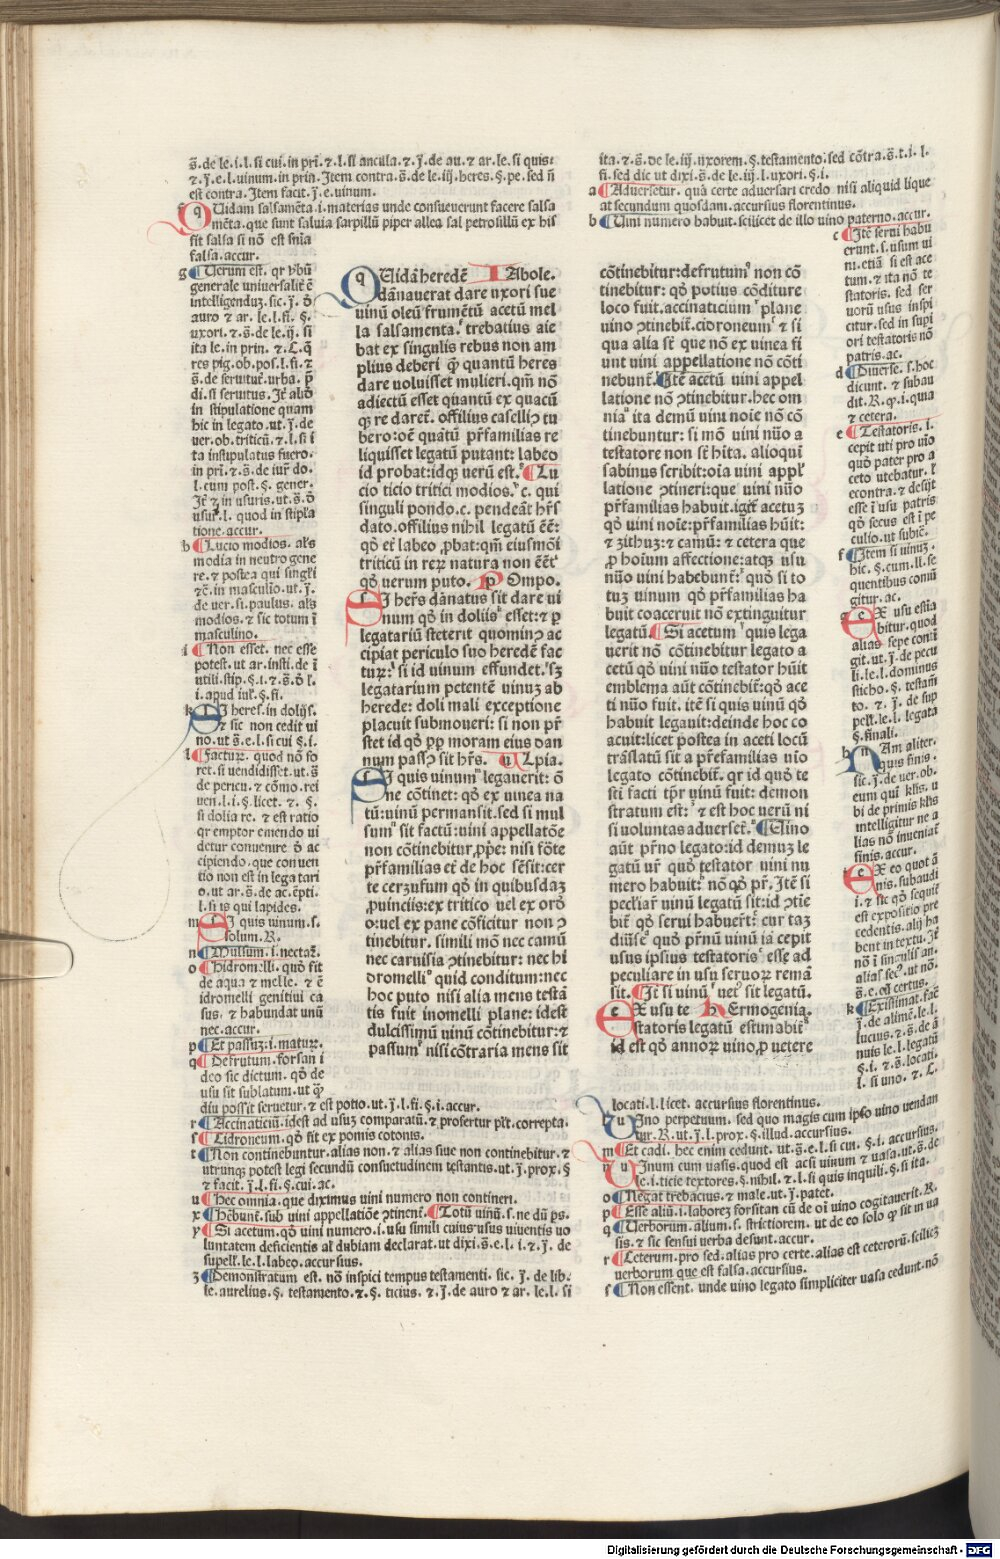 s̄. de le. i. l. si cui. in prī. ⁊ l. si ancilla. ⁊ j̄. de au. ⁊ ar. le. si quis:
⁊ j̄. e. l. uinum. in prin. Item contra. s̄. de le. iij. heres. §. pe. sed ñ
est contra. Item facit. j̄. e. uinum.
f Quidam salsamēta. i. materias unde consueuerunt facere salsa
mēta. que sunt saluia sarpillū piper allea sal petrosillū ex his
fit salsa si nō est
falsa. accur.
g ¶ Uerum est. qr
generale
intelligenduz. sic. j̄.
auro ⁊ ar. le. l. fi. §.
uxori. ⁊ s̄. de le. ij. si
ita le. in prin. ⁊ C. q̄
res pig. ob. pos. l. fi. ⁊
s̄. de seruitut̄. urba. p̄
di. si seruitus.
in stipulatione quam
hic in legato. ut. j̄. de
uer. ob. triticū. ⁊ l. si i
ta instipulatus fuero.
in prī. ⁊ s̄. de iur̄ do.
l. cum post. §. gener.
It̄ ⁊ in usuris. ut. s̄.
usur̄. l. quod in stip̄la
tione. accur.
h ¶ Lucio modios. al's
modia in neutro gene
re. ⁊ postea qui
in masculīo. ut. j̄.
de uer. si. paulus. al's
modios. ⁊ sic totum ī
masculino.
i ¶ Non esset. nec esse
potest. ut ar. insti. de ī
utili. stip. §. i. ⁊ s̄.
i. apud iul̄. §. fi.
k Si heres. in dolijs.
⁊ sic non cedit ui
no. ut s̄. e. l. si cui §. i.
l ¶ Facturꝝ. quod nō fo
ret. si uendidisset. ut. s̄
de pericu. ⁊ cōmo. rei
uen. l. i. §. licet. ⁊ . §.
si dolia re. ⁊ est ratio
qr emptor emendo ui
detur conuenire ac
cipiendo. que conuen
tio non est in lega tari
o. ut ar. s̄. de ac. ēpti.
l. si is qui lapides.
m Si quis uinum. s.
solum. R.
n ¶ Mulsum. i. nectaꝝ.
o ¶ Hidromelli. quod fit
de aqua ⁊ melle. ⁊ ē
idromelli genitiui ca
sus. ⁊ habundat unū
nec. accur.
p ¶ Et passuz. i. maturꝝ.
q ¶ Defrutum. forsan i
deo sic dictum. de
usu sit sublatum. ut
diu possit seruetur. ⁊ est potio. ut. j̄. l. fi. §. i. accur.
r ¶ Accinaticiū. idest ad usuz comparatū. ⁊ profertur correpta.
s ¶ Cidroneum. fit ex pomis cotonis.
t ¶ Non continebuntur. alias non. ⁊ alias siue non continebitur. ⁊
utrunqꝫ potest legi secundū consuetudinem testantis. ut. j̄. prox. §
⁊ facit. j̄. l. fi. §. cui. ac.
u ¶ Hec omnia. que diximus uini numero non contineri.
x ¶ sub uini appellatiōe ꝯtinent̄. ¶ Totū uinū. s. ne dū p̄s.
y ¶ Si acetum. uini numero. i. usu simili cuius usus uiuentis uo
luntatem deficientis al dubiam declarat. ut dixi. s̄. e. l. i. ⁊ j̄. de
supell̄. le. l. labeo. accursius.
z ¶ Demonstratum est. nō inspici tempus testamenti. sic. j̄. de lib.
le. aurelius. §. testamento. ⁊ §. ticius. ⁊ j̄. de auro ⁊ ar. le. l. si
QUidā heredē Iabole.
dānauerat dare uxori sue
uinū oleū frumētū acetū mel
la salsamenta. trebatius aie
bat ex singulis rebus non am
plius deberi quantū heres
dare uoluisset mulieri. qm̄ nō
adiectū esset quantū ex quacū
qꝫ re daret̄. offilius caselliꝰ tu
bero: oē quātū pr̄familias re
liquisset legatū putant: labeo
id probat: idqꝫ uerū est. ¶ Lu
cio ticio tritici modios. c. qui
singuli pondo. c. pendeāt
dato. offilius nihil legatū ēē:
et labeo ꝓbat: qm̄ eiusmōi
triticū in reꝝ natura non
uerum puto. POmpo.
SI dānatus sit dare ui
num in doliis esset: ⁊ ꝑ
legatariū steterit quominꝰ ac
cipiat periculo suo heredē fac
turꝝ: si id uinum effundet. sꝫ
legatarium petentē uinuz ab
herede: doli mali exceptione
placuit submoueri: si non pr̄
stet id moram eius dan
num passꝰ sit UlLpia.
SI quis uinum legauerit: ō
ne cōtinet: ex uinea na
tū: uinū permansit. sed si mul
sum sit factū: uini appellatōe
non cōtinebitur ꝓpe: nisi fōte
pr̄familias et de hoc sēsit: cer
te cerzusum in quibusdaz
ꝓuinciis: ex tritico uel ex orō
o: uel ex pane cōficitur non ꝯ
tinebitur. simili mō nec camū
nec caruisia ꝯtinebitur: nec hi
dromelli quid conditum: nec
hoc puto nisi alia mens testā
tis fuit inomelli plane: idest
dulcissimū uinū cōtinebitur: ⁊
passum nisi cōtraria mens sit
cōtinebitur: defrutum non cō
tinebitur: potius cōditure
loco fuit. accinaticium plane
uino ꝯtinebit̄. cidroneum ⁊ si
qua alia que nō ex uinea fi
unt uini appellatione nō cōti
nebunt̄. ¶ Itē acetū uini appel
latione nō ꝯtinebitur. hec om
nia ita demū uini noīe nō cō
tinebuntur: si mō uini nūo a
testatore non alioqui
sabinus scribit: oīa uini app̄l
latione ꝯtineri: que uini nūo
pr̄familias habuit. acetuz
uini noīe: pr̄familias
⁊ zithuz: ⁊ camū: ⁊ cetera que
ꝓ hoīum affectione: atqꝫ usu
nūo uini habebunt̄: si to
tuz uinum pr̄familias ha
buit coacerit nō extinguitur
legatū. ¶ Si acetum quis lega
uerit nō cōtinebitur legato a
cetū uini nūo testator
emblema aūt cōtinebit̄: ace
ti nūo fuit. itē si quis uinū
habuit legauit: deinde hoc co
acuit: licet postea in aceti locū
trāslatū sit a pr̄familias uīo
legato cōtinebit̄. qr id te
sti facti tp̄r uinū fuit: demon
stratum est: ⁊ est hoc uerū ni
si uoluntas aduerset̄. ¶ Uino
aūt pr̄no legato: id demuz le
gatū testator uini nu
mero habuit: nō pr̄. Itē si
peclīar̄ uinū legatū sit: id ꝯtie
bit̄ serui habuer̄t: cur taz
diūse pr̄nū uinū iā cepit
usus ipsius testatoris esse ad
peculiare in usu seruoꝝ remā
sit. ¶ It̄ si uinū uet sit legatū.
EX usu te hErmogenia.
statoris legatū
id est annoꝝ uino, ꝓ uetere
ita. ⁊ s̄. de le. iij. uxorem. §. testamento: sed cōtra. s̄. t. i. l.
fi. sed dic ut dixi. s̄. de le. iij. l. uxori. §. i.
a ¶ Aduersetur. quā certe aduersari credo nisi aliquid lique
at secundum quosdam. accursius florentinus.
b ¶ Uini numero habuit. scilicet de illo uino paterno. accur.
c ¶ Itē serui habu
erunt. s. usum ui
ni. etiā si est ace
tum. ⁊ ita nō te
statoris. sed ser
uorū usus inspi
citur. sed in supi
ori testatoris nō
patris. ac.
d ¶ Diuerse. s. hoc
dicunt. ⁊ subau
dit. R. i. qua
⁊ cetera.
e ¶ Testatoris. i.
cepit uti pro uīo
pater pro a
ceto utebatur.
econtra. ⁊ desijt
esse ī usu patris
secus est ī pe
culio. ut subic̄.
f ¶ Item si uinuz.
hic. §. cum ll. se
quentibus conū
gitur. ac.
g EX usu estīa
bitur. quod
alias sepe contī
git. ut. j̄. de pecu
li. le. l. dominus
sticho. §. testam̄
to. ⁊ j̄. de sup
pell. le. l. legata
§. finali.
h NAm aliter.
quis finis.
sic. j̄. de uer. ob.
eum qui kl'is. u
bi de primis kl'is
intelligitur ne a
lias nō inueniat̄
finis. accur.
i EX eo quot ā
nis. subaudi
i. ⁊ sic sequit̄
est expositio pre
cedentis. alij ha
bent in textu. It̄
nō ī singulis an.
alias sec̄. ut. nō.
s̄. e. certus.
k ¶ Existimat. fac̄
j̄. de alimē. le. l.
lucius. ⁊ s̄. de ā
nuis le. l. legatū
§. i. ⁊ s̄. locati.
l. si uno. ⁊ C.
locati. l. licet. accursius florentinus.
l UIno perpetuum. sed quo magis cum ipso uino uendan
tur. R. ut. j̄. l. prox. §. illud. accursius.
m ¶ Et cadi. hec enim cedunt. ut. s̄. e. l. si cui. §. i. accursius.
n UInum cum uasis. quod est acsi uinum ⁊ uasa. ut. s̄. de
le. i. ticie textores. §. nihil. ⁊ l. si quis inquili. §. si ita.
o ¶ Negat trebacius. ⁊ male. ut. j̄. patet.
p ¶ Esse aliū. i. laborez forsitan cū de oī uino cogitauerit. R.
q ¶ Uerborum. alium. s. strictiorem. ut de eo solo sit in ua
sis. ⁊ sic sensui uerba desunt. accur.
r ¶ Ceterum. pro sed. alias pro certe. alias est ceterorū. scilicꝫ
uerborum que est falsa. accursius.
s ¶ Non essent. unde uino legato simpliciter uasa cedunt. nō
Digitalisierung gefördert durch die Deutsche Forschungsgemeinschaft - DFG